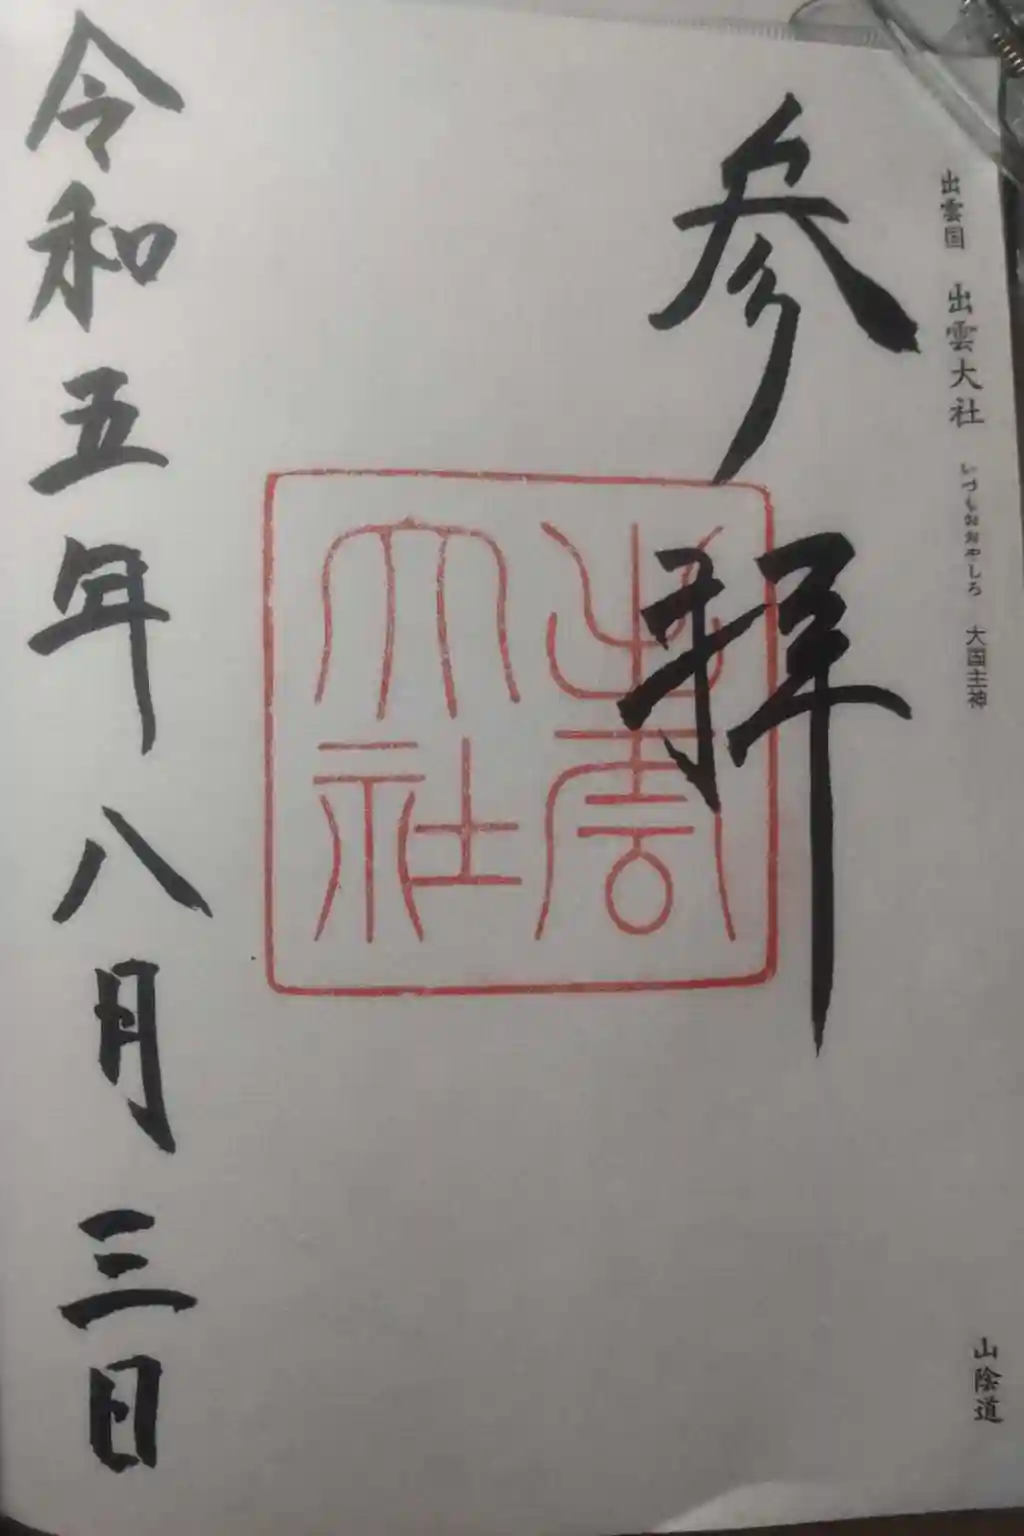 出雲国 出雲大社 いづもおおやしろ 大国主神
山陰道
参拝
出雲
大社
令和五年八月三日